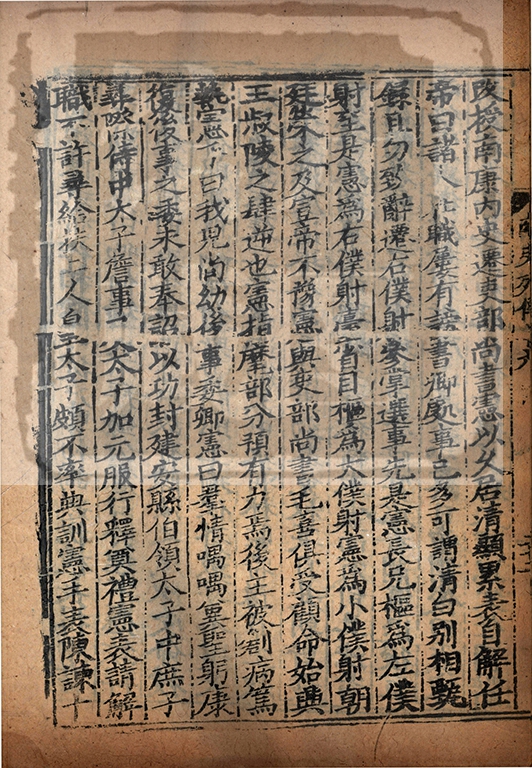 改授南康內史遷吏部尚書憲以久居清顯累表自解任
帝曰諸人在職屢有謗書卿處事已多可謂清白別相甄
錄且勿致辭遷右僕射參掌選事先是憲長兄樞為左僕
射至是憲為右僕射臺省目樞為大僕射憲為小僕射朝
廷榮之及宣帝不豫憲與吏部尚書毛喜俱受顧命始興
王叔陵之肆逆也憲指摩部分預有力焉後主被創病篤
執憲手曰我兒尚幼後事委卿憲曰羣情喁喁冀聖躬康
復後事之委未敢奉詔以功封建安縣伯領太子中庶子
尋除侍中太子詹事太子加元服行釋奠禮憲表請解
職不許尋給扶二人皇太子頗不率典訓憲手表陳諫十